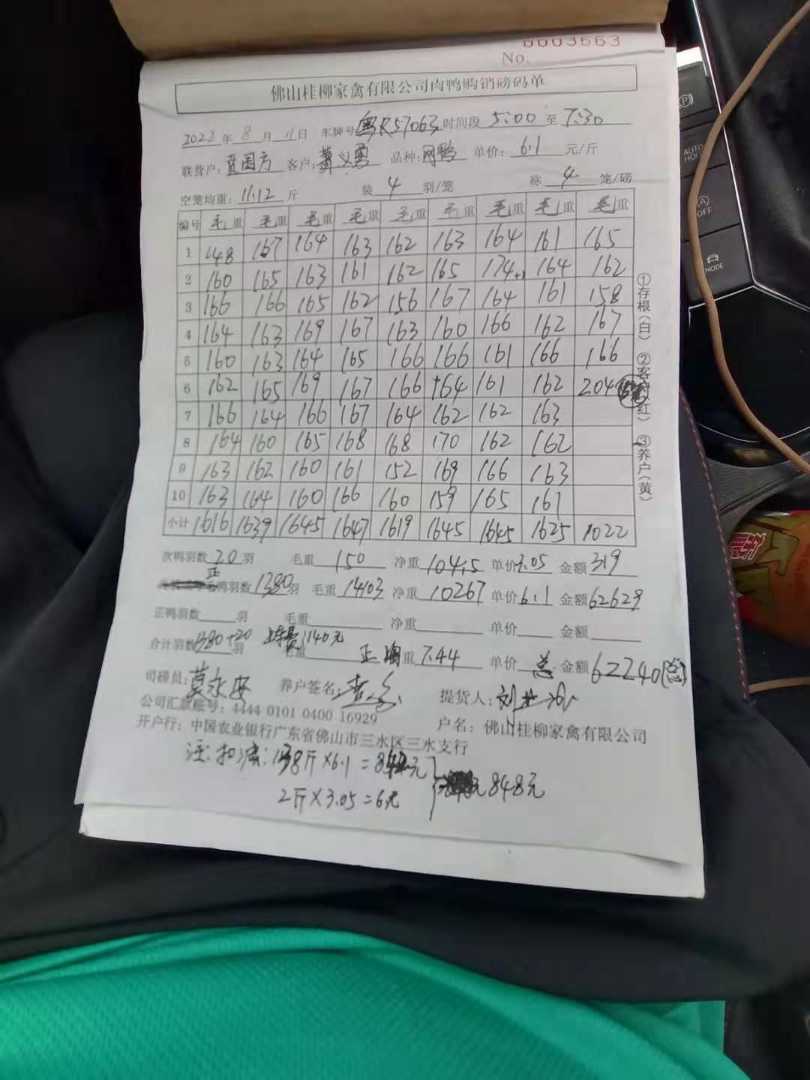 No. 0003663
佛山桂柳家禽有限公司肉鸭购销磅码单
2022 年 8 月 11 日 车牌号 粤R57063 时间段 5:00 至 7:30
联营户: 蓝国方 客户: 萧义勇 品种: 网鸭 单价: 6.1 元/斤
空笼均重: 11.12 斤 装 4 羽/笼 称 4 笼/磅
编号 毛重 毛重 毛重 毛重 毛重 毛重 毛重 毛重 毛重
1 148 167 164 163 162 163 164 161 165
2 160 165 163 161 162 165 174 164 162
3 166 166 165 162 156 167 164 161 158
4 164 163 169 167 163 160 166 162 167
5 160 163 164 165 166 166 161 166 166
6 162 165 169 167 166 164 161 162 204
7 166 164 166 167 164 162 162 163
8 164 160 165 168 168 170 162 162
9 163 162 160 161 152 169 166 163
10 163 164 160 166 160 159 165 161
小计 1616 1639 1645 1647 1619 1645 1645 1625 1022
①存根(白) ②客户(红) ③养户(黄)
次鸭羽数 20 羽 毛重 150 净重 104.5 单价 3.05 金额 319
正鸭羽数 1380 羽 毛重 14103 净重 10267 单价 6.1 金额 62629
正鸭羽数 羽 毛重 净重 单价 金额
合计羽数 1380+20 羽 1140元 毛重 正 均重 7.44 单价 总 金额 62240(总)
司磅员: 养户签名: 提货人:
公司汇款账号: 4444 0101 0400 16929 户名: 佛山桂柳家禽有限公司
开户行: 中国农业银行广东省佛山市三水区三水支行
注: 扣 138斤×6.1=842元
2斤×3.05=6元 848元